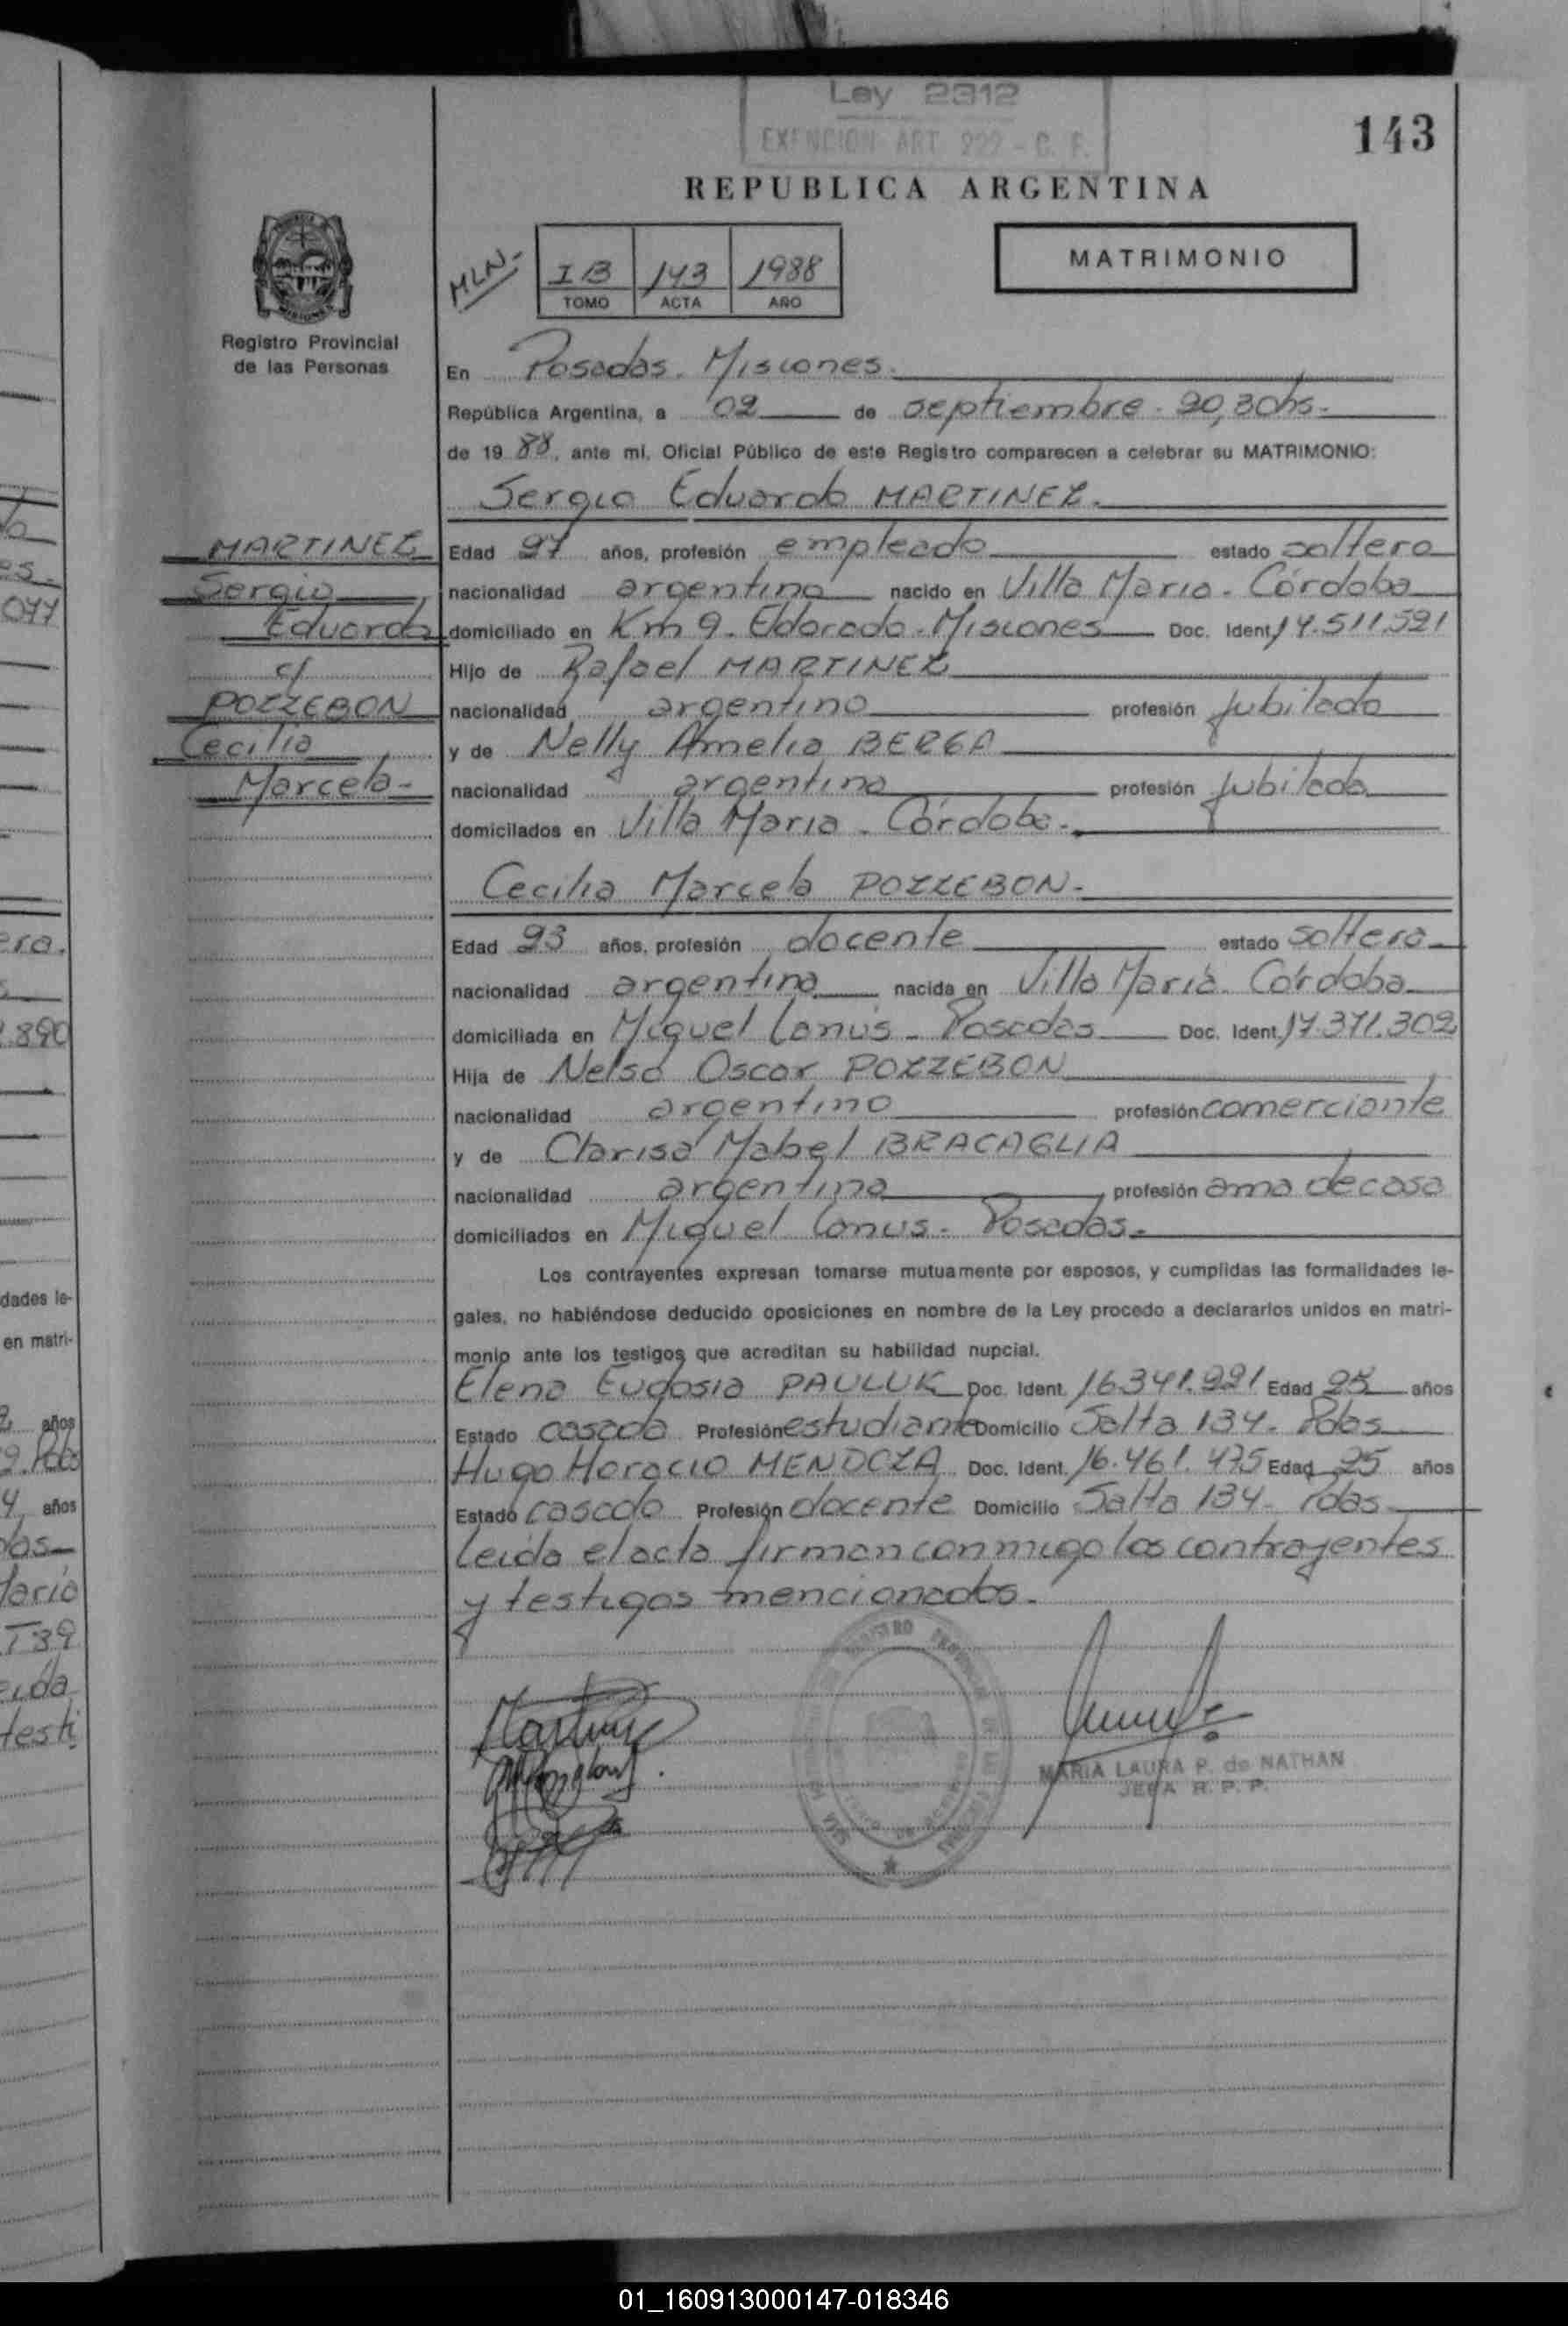 Ley 2312
EXENCION ART. 222 - C. F.
143
REPUBLICA ARGENTINA
MLN-
I B 143 1988
TOMO ACTA AÑO
MATRIMONIO
Registro Provincial
de las Personas
En Posadas. Misiones.
República Argentina, a 02 de septiembre. 20,30hs.
de 19 88, ante mi, Oficial Público de este Registro comparecen a celebrar su MATRIMONIO:
Sergio Eduardo MARTINEZ.
MARTINEZ
Sergio
Eduardo
c/
POZZEBON
Cecilia
Marcela-
Edad 27 años, profesión empleado estado soltero
nacionalidad argentina nacido en Villa Maria. Córdoba
domiciliado en Km 9. Eldorado. Misiones Doc. Ident. 14.511.521
Hijo de Rafael MARTINEZ
nacionalidad argentino profesión jubilado
y de Nelly Amelia BERGA
nacionalidad argentina profesión jubilada
domicilados en Villa Maria. Córdoba-.
Cecilia Marcela POZZEBON-
Edad 23 años, profesión docente estado soltera
nacionalidad argentina nacida en Villa María. Córdoba
domiciliada en Miguel Lanús - Posadas Doc. Ident. 17.371.302
Hija de Nelso Oscar POZZEBON
nacionalidad argentino profesión comerciante
y de Clarisa Mabel BRACAGLIA
nacionalidad argentina profesión ama de casa
domiciliados en Miguel Lanus- Posadas-
Los contrayentes expresan tomarse mutuamente por esposos, y cumplidas las formalidades le-
gales, no habiéndose deducido oposiciones en nombre de la Ley procedo a declararlos unidos en matri-
monio ante los testigos que acreditan su habilidad nupcial.
Elena Eudosia PAULUK Doc. Ident. 16.341.221 Edad 25 años
Estado casada Profesión estudiante Domicilio Salta 134. Pdas
Hugo Horacio MENDOZA Doc. Ident. 16.461.475 Edad 25 años
Estado casado Profesión docente Domicilio Salta 134- Pdas
Leida el acta firman conmigo los contrayentes
y testigos mencionados.
MARIA LAURA P. de NATHAN
JEFA R. P. P.
01_160913000147-018346